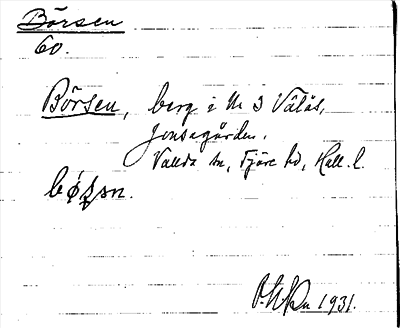 Börsen
60.
Börsen, berg i N 3 Välås,
Jonsagården,
Vallda sn, Fjäre hd, Hall. l.
1931.